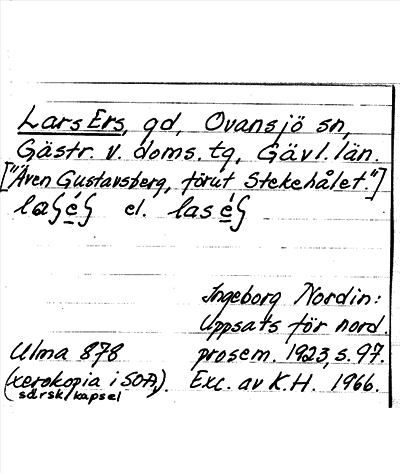 Lars Ers, gd, Ovansjö sn,
Gästr. v. doms. tg, Gävl. län.
["Även Gustavsberg, förut Stekehålet."]
el.
Ingeborg Nordin:
Uppsats för nord.
Ulma 878 prosem. 1923, s. 97.
(xerokopia i SOA, Exc. av K.H. 1966.
särsk. kapsel).